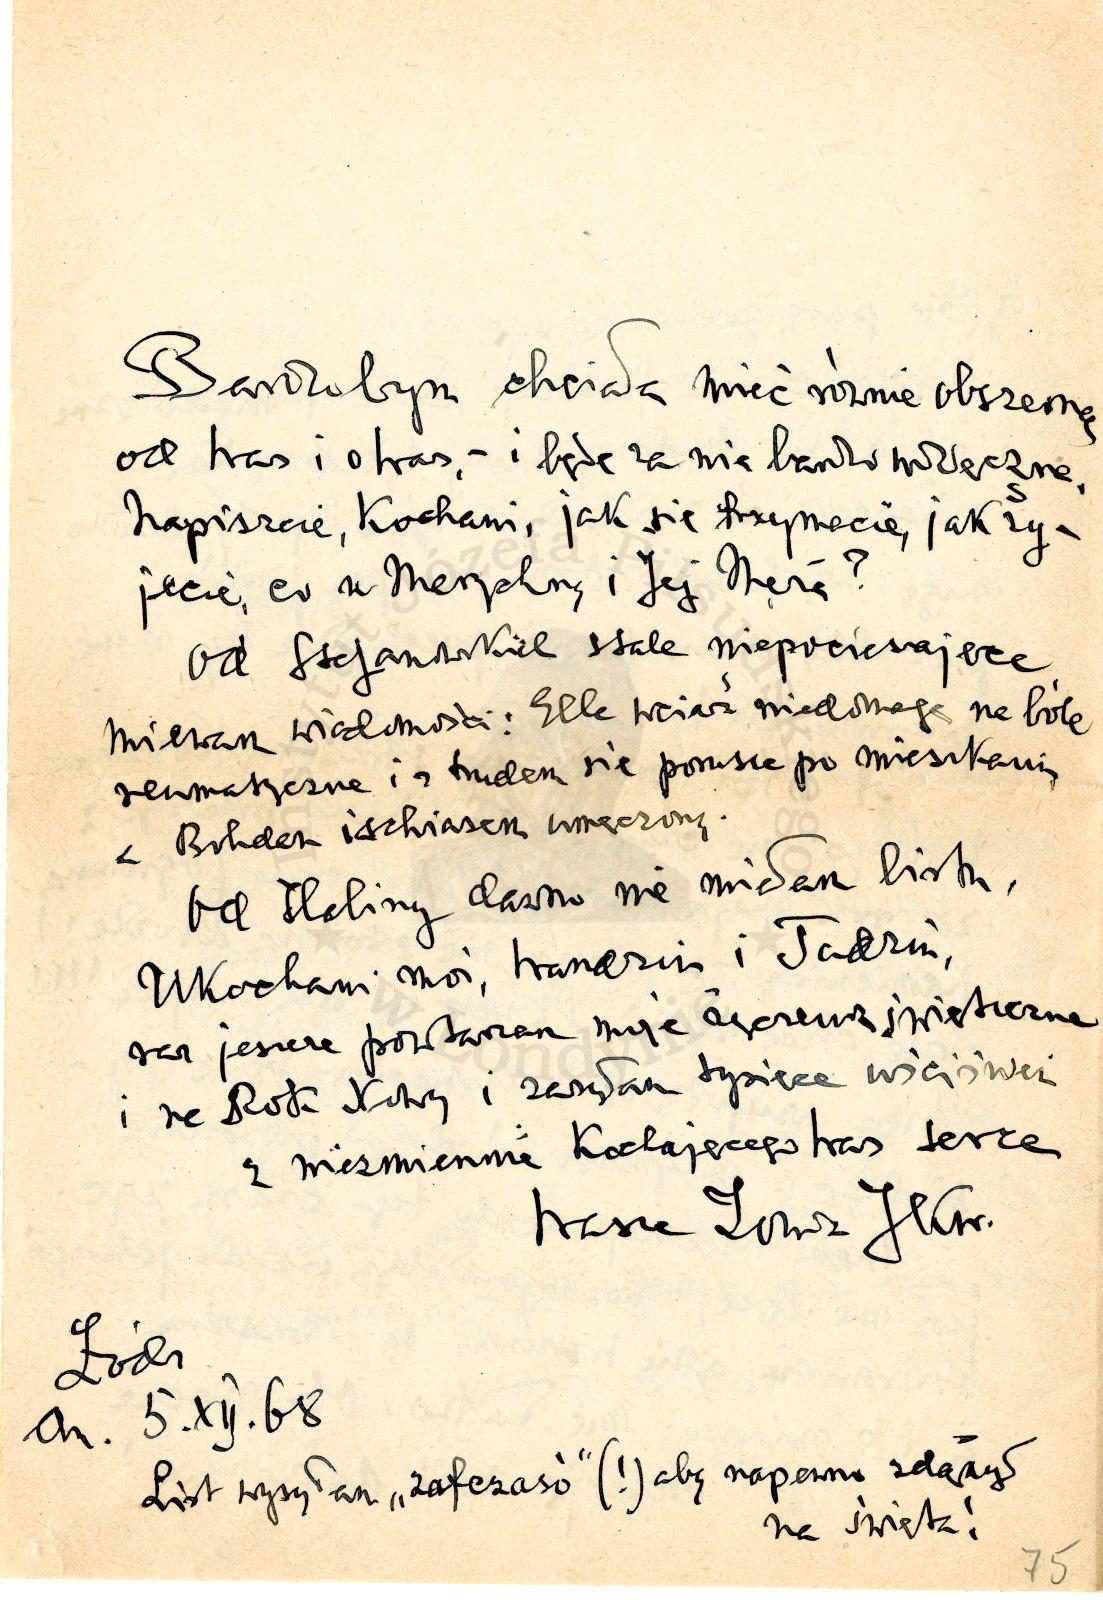 Bardzobym chciała mieć równie obszerną
od Was i o Was, – i będę za nią bardzo wdzięczna.
Napiszcie, Kochani, jak się trzymacie, jak ży-
jecie, co u Marychny i Jej Męża?
Od Stefanowskich stale niepocieszające
miewam wiadomości: Ella wciąż niedomaga na bóle
reumatyczne i z trudem się porusza po mieszkaniu,
a Bohdan ischiasem umęczony.
Od Haliny dawno nie miałam listu.
Ukochani moi, Wandziu i Tadziu,
raz jeszcze powtarzam moje życzenia świąteczne
i na Rok Nowy i zasyłam tysiące uściśnień
z niezmiennie Kochającego Was serca
Wasza JKw.
Łódź
dn. 5.XII.68
List wysyłam „zafczasó" (!) aby napewno zdążył
na święta!
75